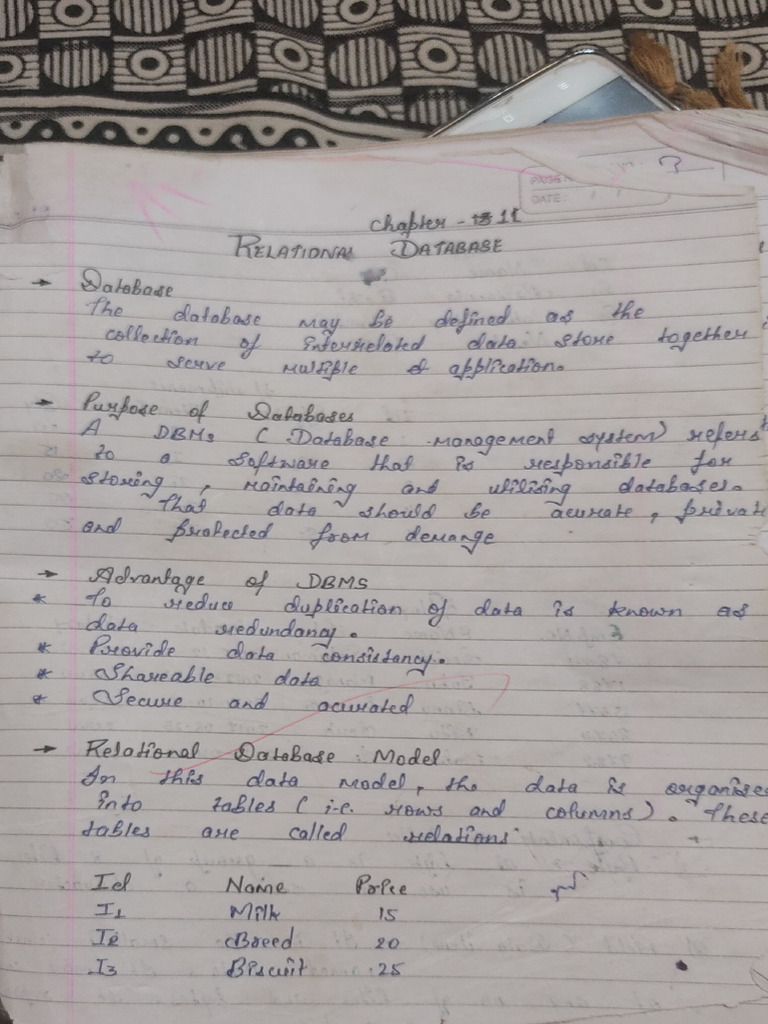 PAGE N
DATE: / /
Chapter - 11
RELATIONAL DATABASE
→ Database
The database may be defined as the
collection of interrelated data store together
to serve multiple application.
→ Purpose of Databases
A DBMS ( Database management system) refers
to a software that is responsible for
storing, maintaining and utilising databases.
That data should be acurate, privat
and protected from demange
→ Advantage of DBMS
* To reduce duplication of data is known as
data redundancy.
* Provide data consistancy.
* Shareable data
* Secure and acurated
→ Relational Database Model
In this data model, the data is organise
into tables ( i.e. rows and columns). These
tables are called relations
Id Name Price
I1 Milk 15
I2 Breed 20
I3 Biscuit 25